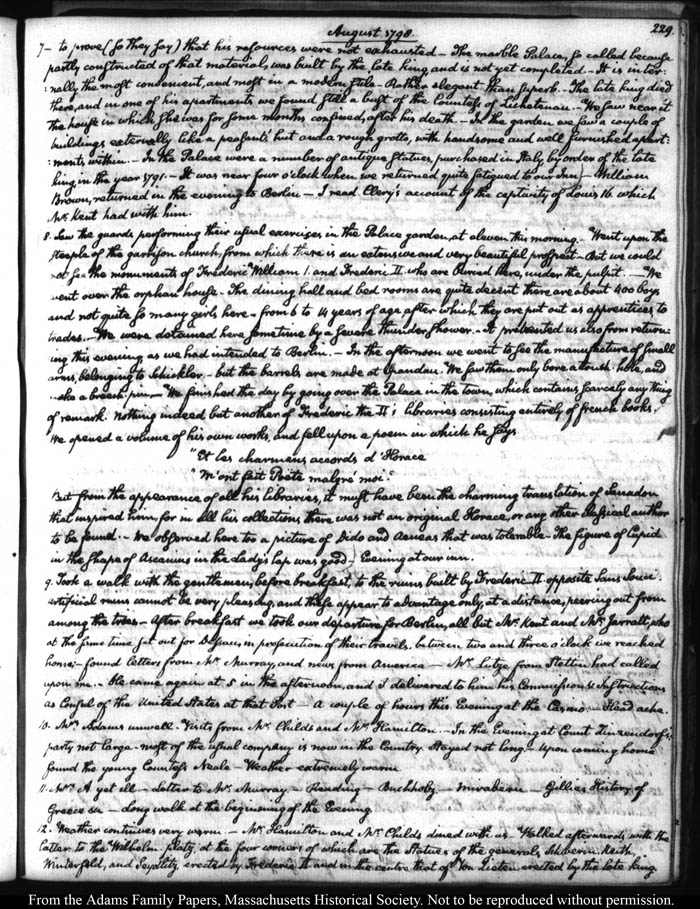 August 1798.
229.
7 - to prove (so they say) that his resources were not exhausted - The marble Palace, so called because
partly constructed of that material, was built by the late king, and is not yet completed - It is inter-
:nally the most convenient, and most in a modern stile - Rather elegant than superb. - The late king died
there, and in one of his apartments we found still a bust of the Countess of Lichetenau. - We saw near it
the house in which she was for some months confined, after his death - In the garden we saw a couple of
buildings externally like a peasants' hut and a rough grotto, with handsome and well furnished apart:
:ments within. - In the Palace were a number of antique statues, purchased in Italy, by order of the late
king in the year 1791. - It was near four o'clock when we returned quite fatigued to our Inn - William
Brown, returned in the evening to Berlin - I read Clery's account of the captivity of Louis 16. which
Mr. Kent had with him.
8. Saw the guards performing their usual exercises in the Palace garden, at eleven this morning. - Went upon the
steeple of the garrison church, from which there is an extensive and very beautiful prospect - But we could
not see the monuments of Frederic William 1. and Frederic II. who are buried there, under the pulpit. - We
went over the orphan house - The dining hall and bed rooms are quite decent there are about 400 boys
and not quite so many girls here - from 6 to 14 years of age after which they are put out as apprentices to
trades. - We were detained here sometime by a severe thunder shower. - It prevented us also from return:
ing this evening as we had intended to Berlin. - In the afternoon we went to see the manufacture of small
arms, belonging to Schickler. - but the barrels are made at Spandau. We saw them only bore a touch-hole, and
make a breech-pin - We finished the day by going over the Palace in the town, which contains scarcely any thing
of remark. Nothing indeed but another of Frederic the II's libraries consisting entirely of french books.
We opened a volume of his own works, and fell upon a poem in which he says
"Et les charmans accords d'Horace
"M'ont fait Poëte malgré moi."
But from the appearance of all his libraries, it must have been the charming translation of Sanadon
that inspired him, for in all his collections there was not an original Horace, or any other classical author
to be found. - We observed here too a picture of Dido and Aeneas that was tolerable - The figure of Cupid
in the shape of Ascanius in the lady's lap was good - Evening at our inn.
9. Took a walk with the gentlemen, before breakfast, to the ruins built by Frederic II opposite Sans Souci.
artificial ruins cannot be very pleasing, and these appear to advantage only, at a distance, peering out from
among the trees. - After breakfast we took our departure for Berlin, all but Mr. Kent and Mr. Jarrett, who
at the same time set out for Dessau, in prosecution of their travels. between two and three o'clock we reached
home; - found letters from Mr. Murray, and news from America - Mr. Lutze, from Stettin had called
upon me. - He came again at 5 in the afternoon, and I delivered to him his Commission & Instructions
as Consul of the United States at that Port - A couple of hours this Evening at the Casino. - Head ache.
10. Mrs. Adams unwell - Visits from Mr. Childs and Mr. Hamilton. - In the Evening at Count Zinzendorf's
party not large - most of the usual company is now in the Country. Stayed not long - Upon coming home
found the young Countess Neale - Weather extremely warm.
11. Mrs. A yet ill - Letter to Mr. Murray, - Reading - Buchholz, - Mirabeau - Gillies History of
Greece &c - Long walk at the beginning of the Evening
12. Weather continues very warm - Mr. Hamilton and Mr. Childs dined with us. Walked afterwards with the
latter to the Wilhelm-platz, at the four corners of which are the Statues of the generals, Schwerin, Keith,
Winterfeld, and Seydlitz, erected by Frederic II. and in the centre that of Von Zieten erected by the late king.
From the Adams Family Papers, Massachusetts Historical Society. Not to be reproduced without permission.